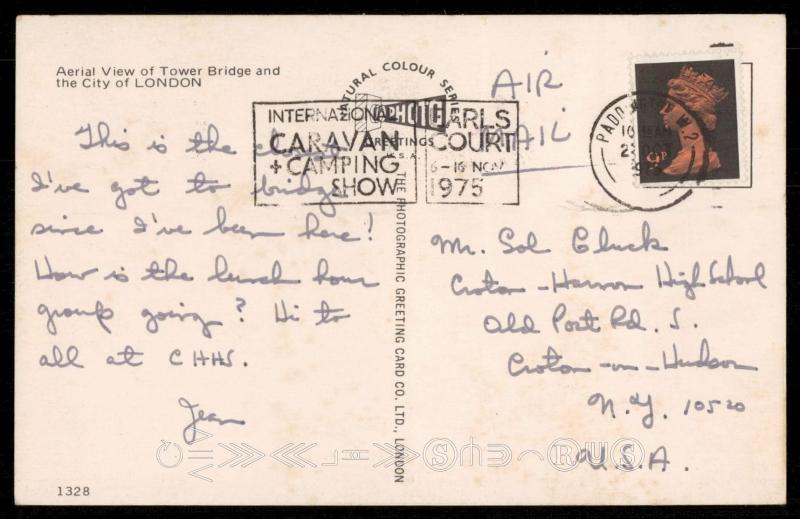 Aerial View of Tower Bridge and
the City of LONDON
This is the closest
I've got to bridge
since I've been here!
How is the lunch hour
group going? Hi to
all at CHHS.
Jean
1328
NATURAL COLOUR SERIES
PHOTO
GREETINGS
U.S.A.
THE PHOTOGRAPHIC GREETING CARD CO. LTD., LONDON
INTERNATIONAL
CARAVAN
+ CAMPING
SHOW
EARLS
COURT
6-16 NOV
1975
AIR
MAIL
PADDINGTON W.2
9P
Mr. Sol Gluck
Croton-Harmon High School
Old Post Rd. S.
Croton-on-Hudson
N.Y. 10520
U.S.A.